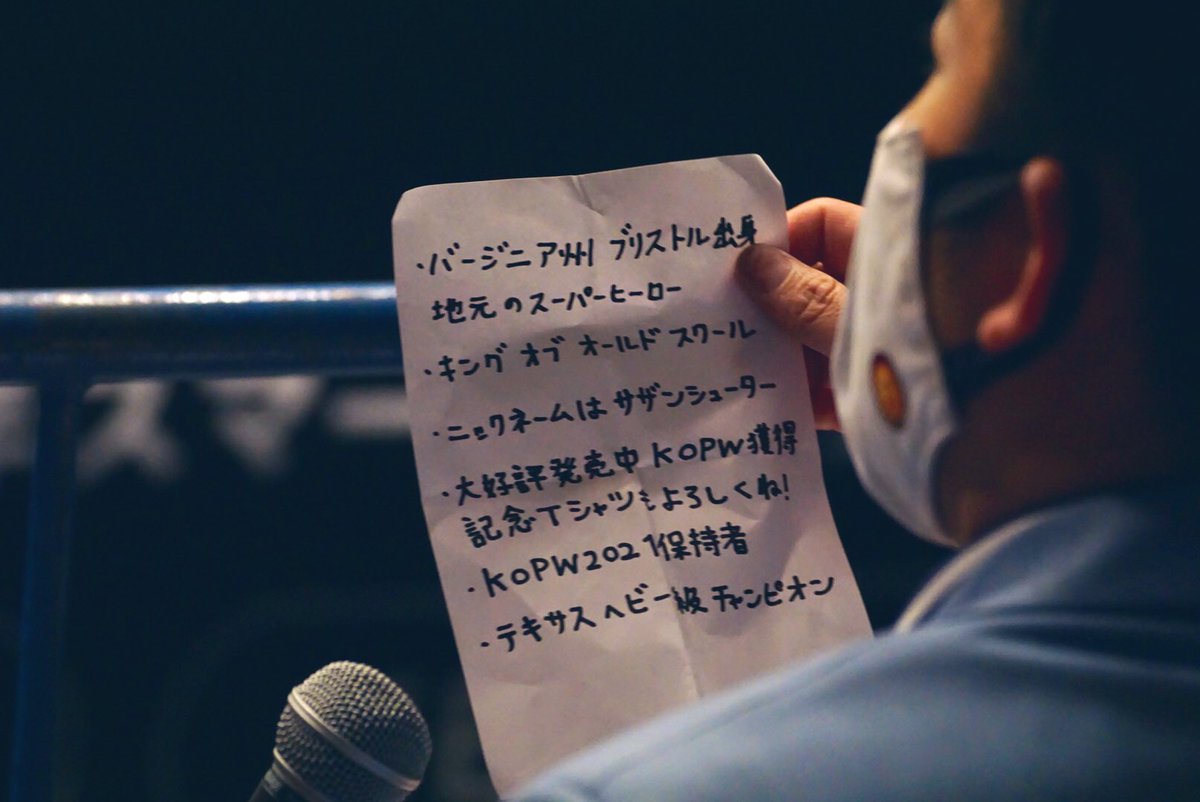 ・バージニア州 ブリストル出身
地元のスーパーヒーロー
・キング オブ オールド スクール
・ニックネームは サザンシューター
・大好評発売中 KOPW獲得
記念Tシャツもよろしくね!
・KOPW2021保持者
・テキサスヘビー級チャンピオン